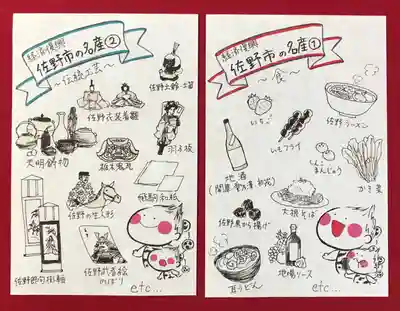 経済復興
佐野市の名産②
〜伝統工芸〜
佐野土鈴・土器
佐野衣装着雛
羽子板
天明鋳物
栃木鬼瓦
飛駒和紙
佐野の生人形
佐野武者絵
のぼり
佐野節句掛軸
etc...
経済復興
佐野市の名産①
〜食〜
いちご
佐野ラーメン
いもフライ
地酒
しんこ
まんじゅう
かき菜
佐野黒から揚げ
大根そば
耳うどん
地場ソース
etc...